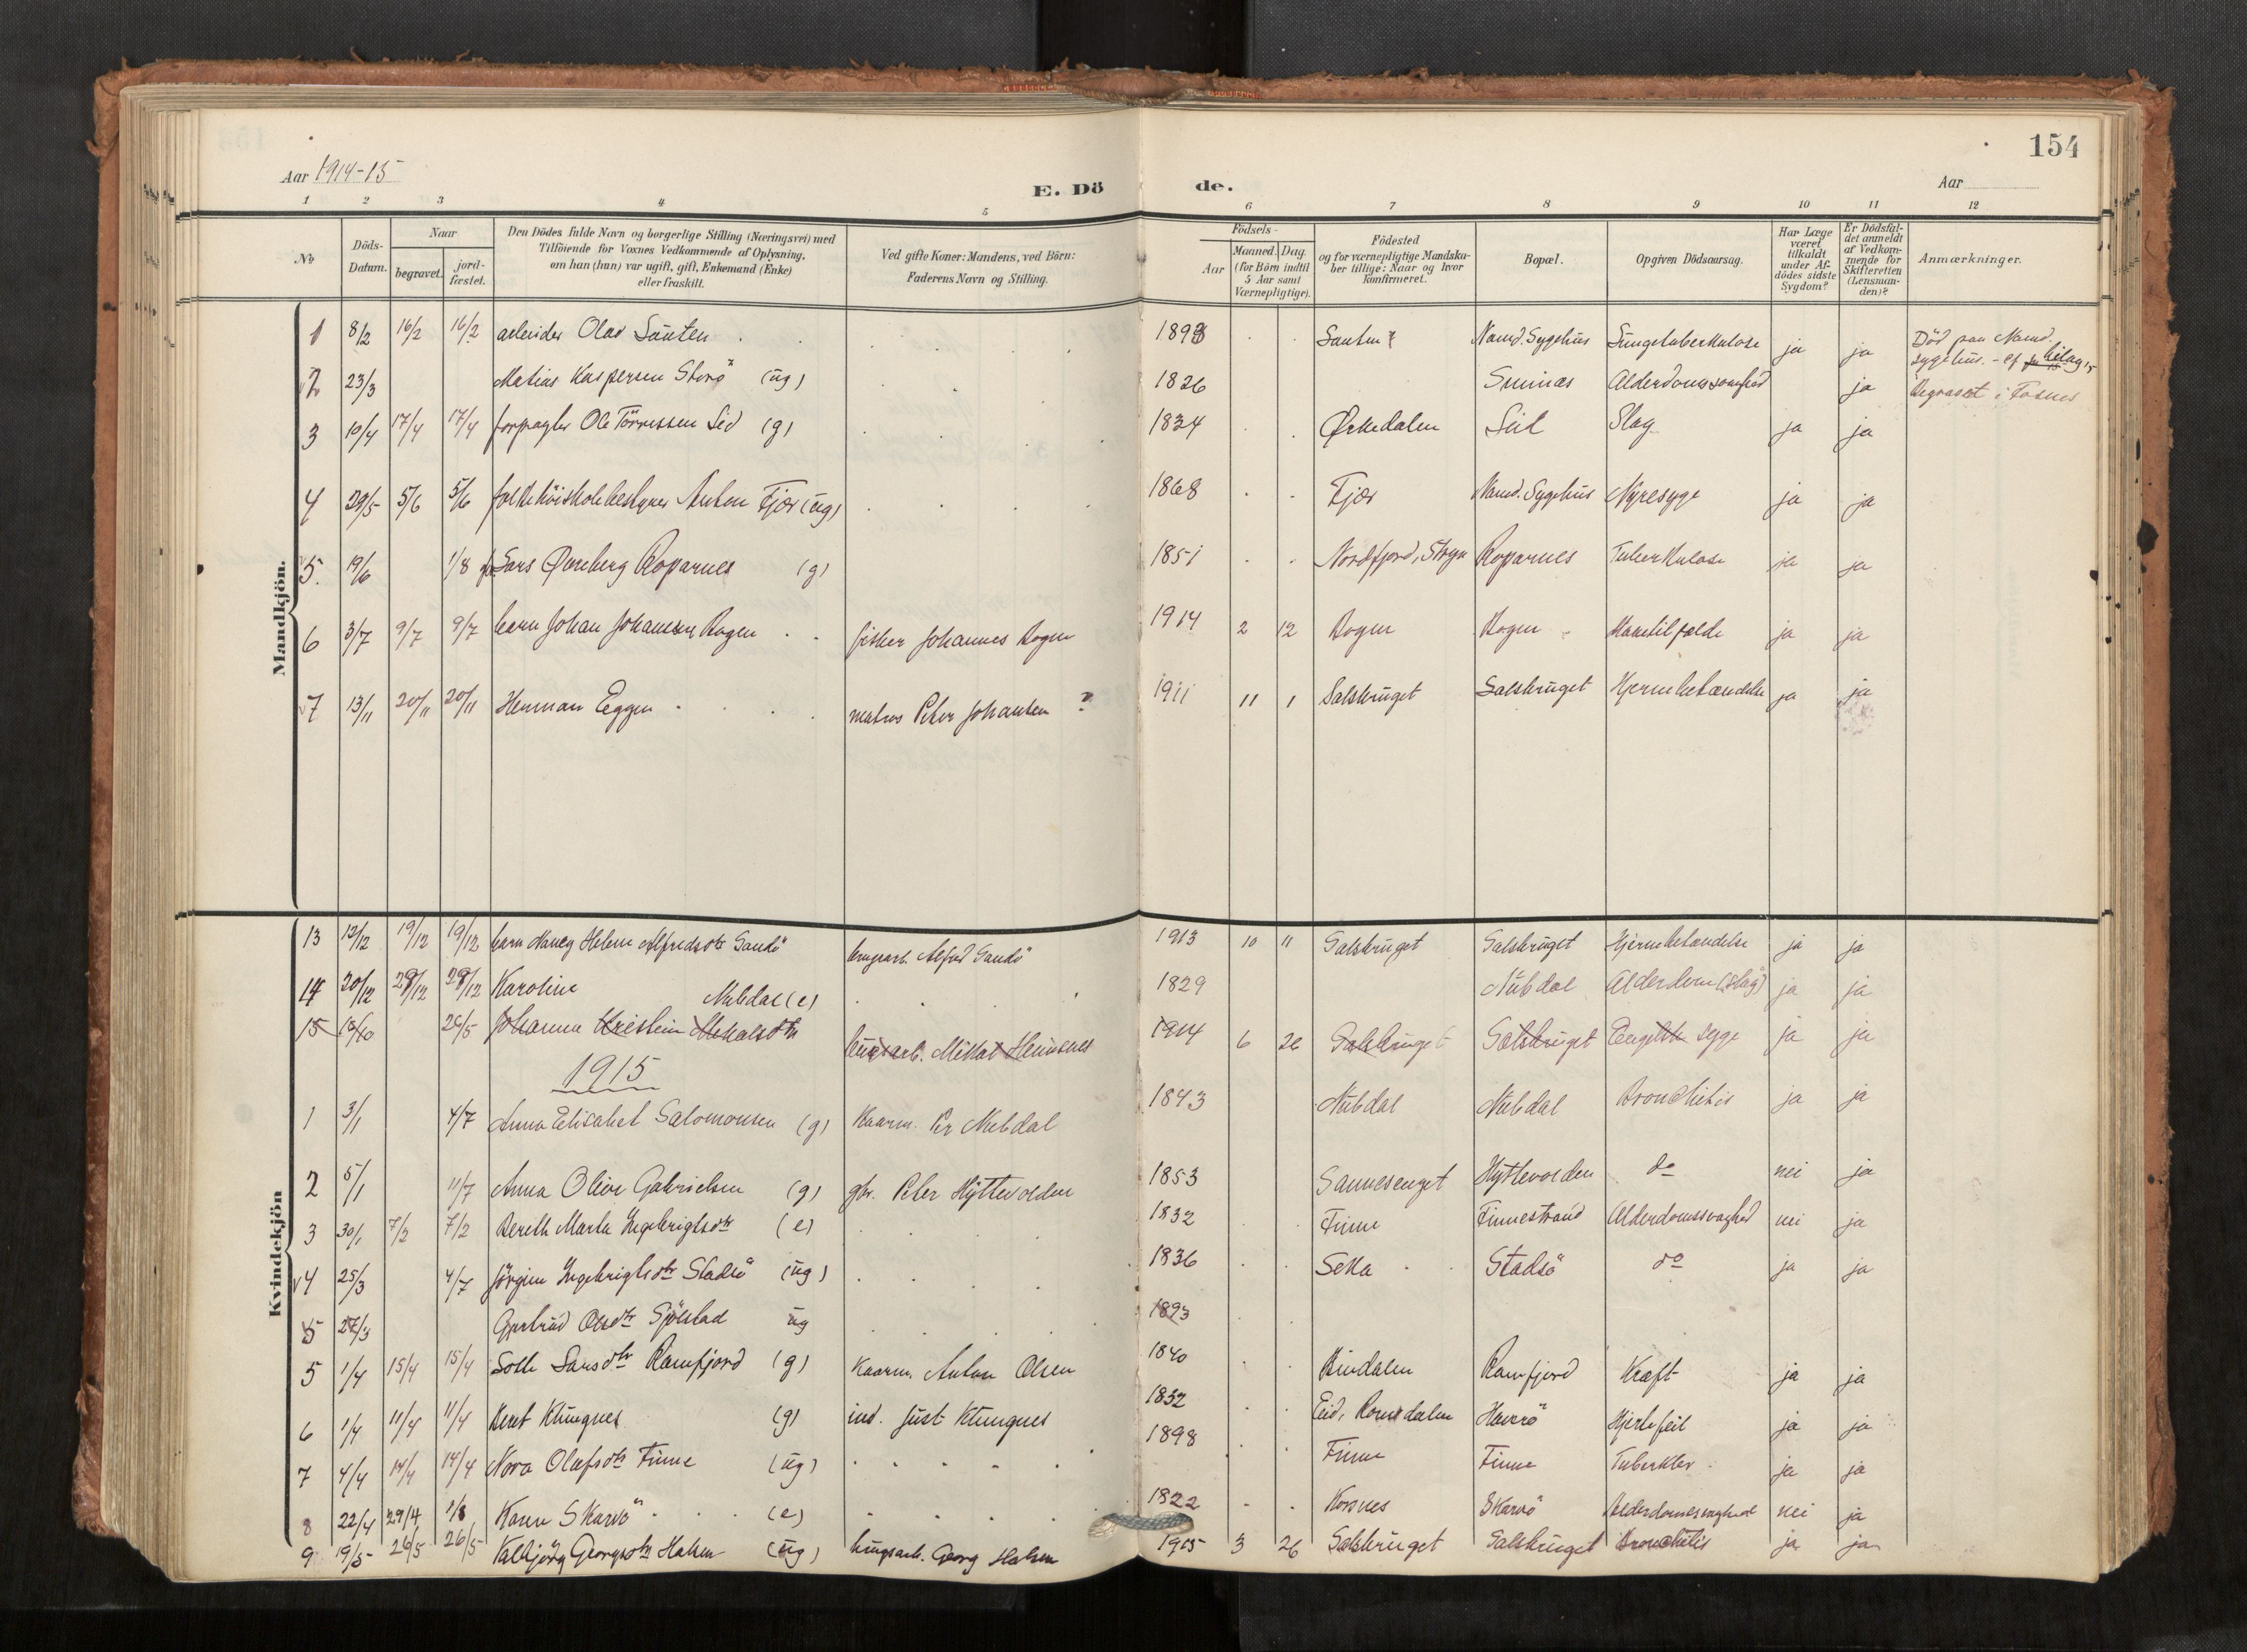 154
Aar 1914-15
E. Dö de.
Aar
1 2 3 4 5 6 7 8 9 10 11 12
No
Döds-Datum.
Naar
begravet.
jord-fæstet.
Den Dödes fulde Navn og borgerlige Stilling (Næringsvei) med
Tilföiende for Voxnes Vedkommende af Oplysning,
om han (hun) var ugift, gift, Enkemand (Enke)
eller fraskilt.
Ved gifte Koner: Mandens, ved Börn:
Faderens Navn og Stilling.
Födsels-
Aar
Maaned. Dag.
(for Börn indtil
5 Aar samt
Værnepligtige).
Födested
og for værnepligtige Mandska-
ber tillige: Naar og hvor
konfirmeret.
Bopæl.
Opgiven Dödsaarsag.
Har Læge
været
tilkaldt
under Af-
dödes sidste
Sygdom?
Er Dödsfal-
det anmeldt
af Vedkom-
mende for
Skifteretten
(Lensman-
den)?
Anmærkninger.
Mandkjön.
1 8/2 16/2 16/2 arbeider Olav Santen 189 Namd. Sygehus Lungetuberkulose ja ja Död paa Namd. sygehus.
2 23/3 Matias Kaspersen Storö (ug) 1826 Alderdomssvaghed ja Begravet i Fosnes
3 10/4 17/4 17/4 forpagter Ole Törrissen (g) 1834 Ørkedalen Slag ja ja
4 29/5 5/6 5/6 folkehöiskolebestyrer Anton Fjær (ug) 1868 Fjær Namd. Sygehus Nyresyge ja ja
5. 19/6 1/8 Lars Roparnes (g) 1851 Nordfjord, Stryn Roparnes Tuberkulose ja ja
6 3/7 9/7 9/7 barn Johan Johansen Rogen fisker Johannes Rogen 1914 2 12 Rogen Rogen ja ja
7 13/11 20/11 20/11 Herman Eggen matros Peter Johansen ? 1911 11 1 Salsbruget Salsbruget Hjernebetændelse ja ja
Kvindekjön
13 12/12 19/12 19/12 barn Nancy Helene Alfredsdtr Sandö brugsarb. Alfred Sandö 1913 10 11 Salsbruget Salsbruget Hjernebetændelse ja ja
14 20/12 29/12 29/12 Karoline Nubdal (e) 1829 Nubdal Alderdom (slag) ja ja
15 Johanna Kristein brugsarb. 1914 6 26 Salsbruget Salsbruget Engelsk syge ja ja
1915
1 3/1 4/7 Anna Elisabet Salomonsen (g) Kaarm. Per Nubdal 1843 Nubdal Nubdal Bronchitis ja ja
2 5/1 11/7 Anna Olive Gabrielsen (g) gbr. Peter Hyttevolden 1853 Sannesenget Hyttevolden do nei ja
3 30/1 7/2 7/2 Bereth Marta Ingebrigtsdtr (e) 1832 Finne Finnestrand Alderdomssvaghed nei ja
4 25/3 4/7 Jörgine Ingebrigtsdtr Stadsö (ug) 1836 Setta Stadsö do ja ja
5 27/3 Gjertrud Olsdtr Sjölstad ug 1893
5 1/4 15/4 15/4 Larsdtr Ramfjord (g) Kaarm. Anton Olsen 1840 Bindalen Ramfjord Kræft ja ja
6 1/4 11/4 11/4 Beret Klungnes (g) ind. Just Klungnes 1832 Eid, Romsdalen Hjertefeil ja ja
7 4/4 14/4 14/4 Nora Olafsdtr Finne (ug) 1898 Finne Finne ja ja
8 22/4 29/4 1/8 Karen Skarvö (e) 1822 Korsnes Skarvö Alderdomssvaghed nei ja
9 19/5 26/5 26/5 Valbjörg Georgsdtr Halsen (ug) brugsarb. Georg Halsen 1915 3 26 Salsbruget Salsbruget Bronchitis ja ja